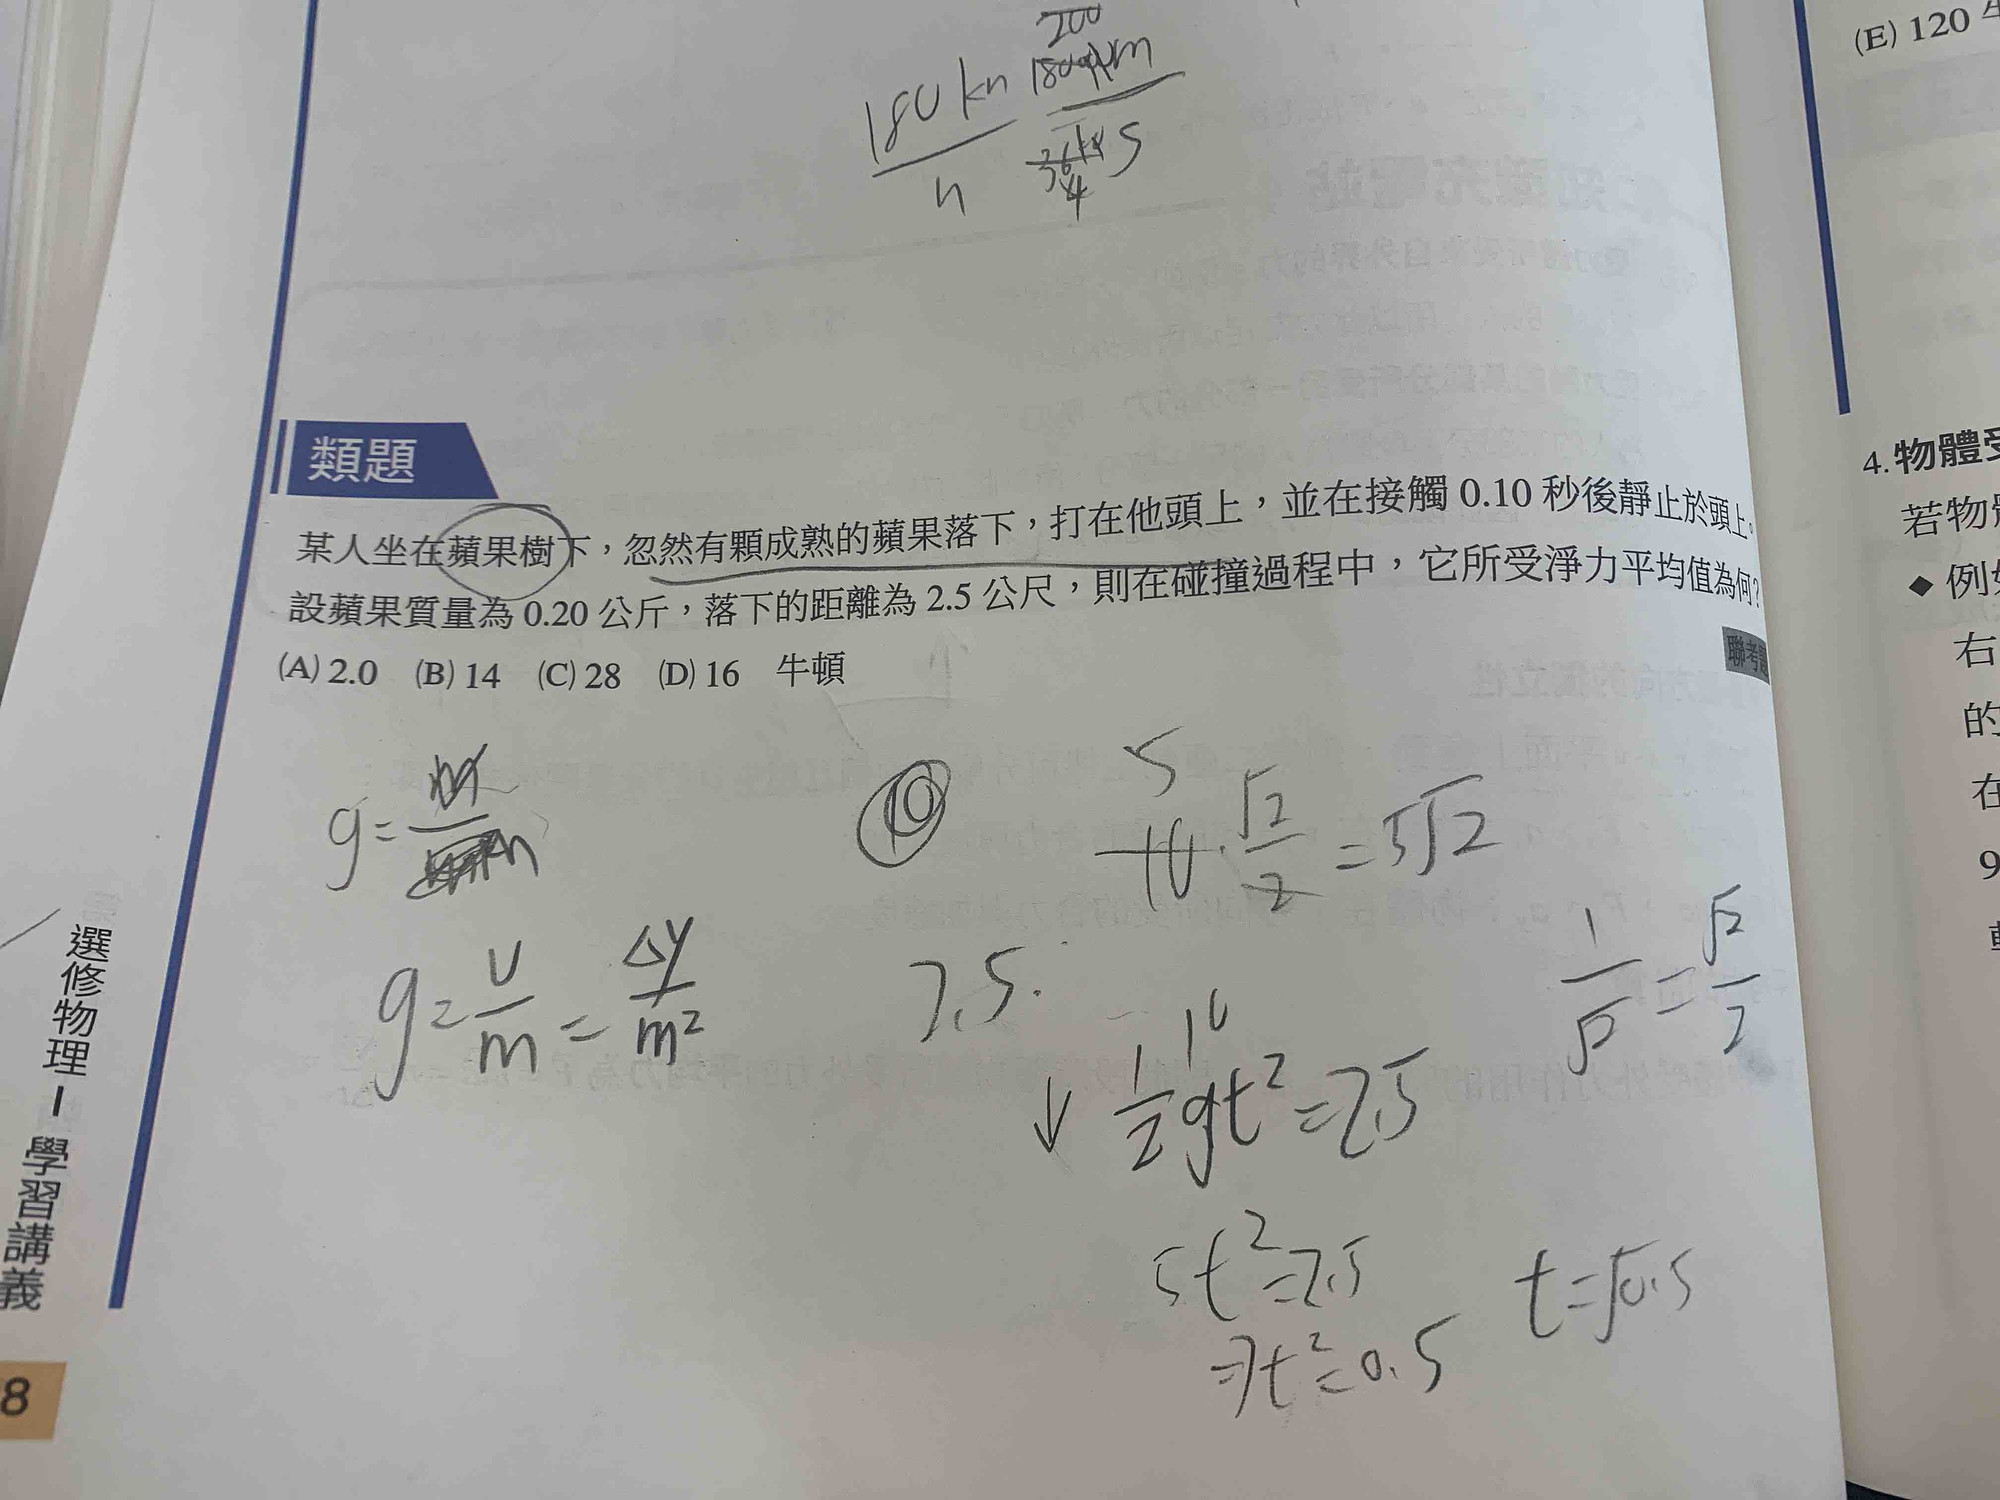 180 km
h
200
S
(E) 120
類題
某人坐在蘋果樹下，忽然有顆成熟的蘋果落下，打在他頭上，並在接觸 0.10 秒後靜止於頭上。
設蘋果質量為 0.20 公斤，落下的距離為 2.5 公尺，則在碰撞過程中，它所受淨力平均值為何？
聯考題
(A) 2.0 (B) 14 (C) 28 (D) 16 牛頓
g=
10
5
10·√2/2=5√2
g=v/m=Δy/m²
2.5
1/√2=√2/2
10
↓ 1/2gt²=2.5
5t²=2.5
t=√0.5
⇒t²=0.5
選修物理 I 學習講義
8
4. 物體受
若物體
◆ 例如
右
的
在
9